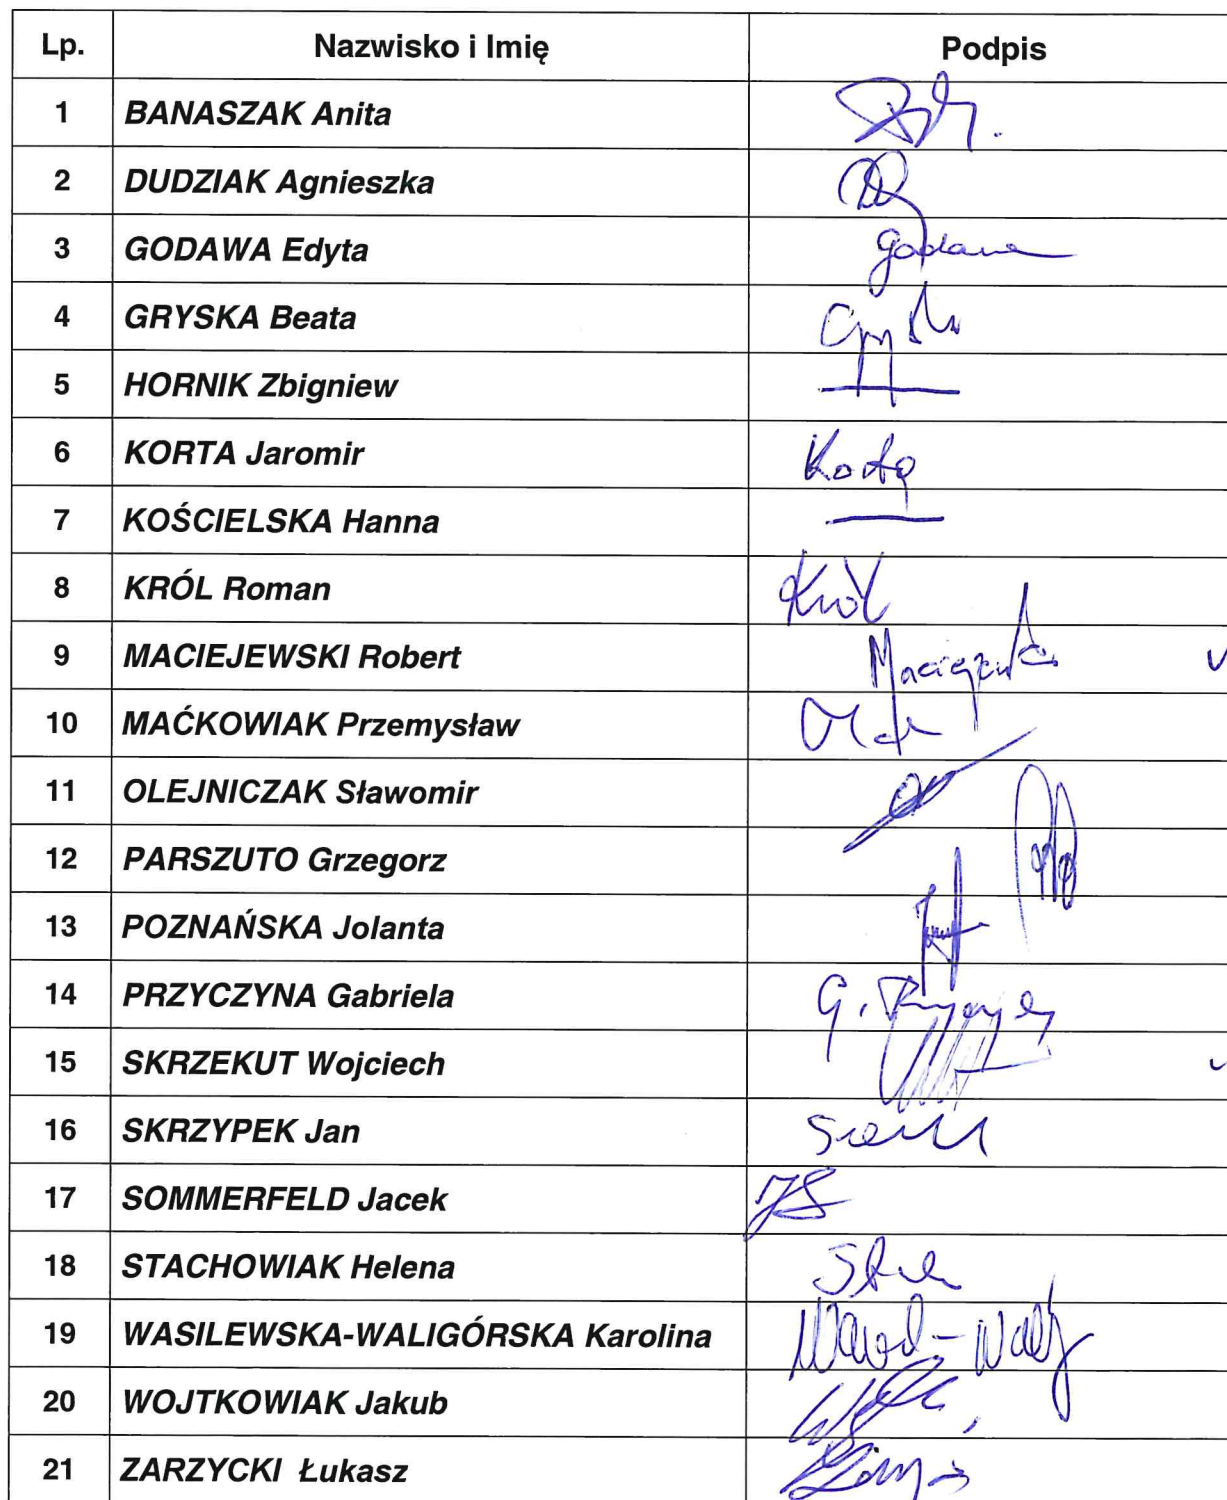 Lp. Nazwisko i Imię Podpis
1 BANASZAK Anita
2 DUDZIAK Agnieszka
3 GODAWA Edyta Godawa
4 GRYSKA Beata
5 HORNIK Zbigniew
6 KORTA Jaromir Korta
7 KOŚCIELSKA Hanna
8 KRÓL Roman Król
9 MACIEJEWSKI Robert
10 MAĆKOWIAK Przemysław
11 OLEJNICZAK Sławomir
12 PARSZUTO Grzegorz
13 POZNAŃSKA Jolanta
14 PRZYCZYNA Gabriela
15 SKRZEKUT Wojciech
16 SKRZYPEK Jan
17 SOMMERFELD Jacek JS
18 STACHOWIAK Helena
19 WASILEWSKA-WALIGÓRSKA Karolina
20 WOJTKOWIAK Jakub
21 ZARZYCKI Łukasz